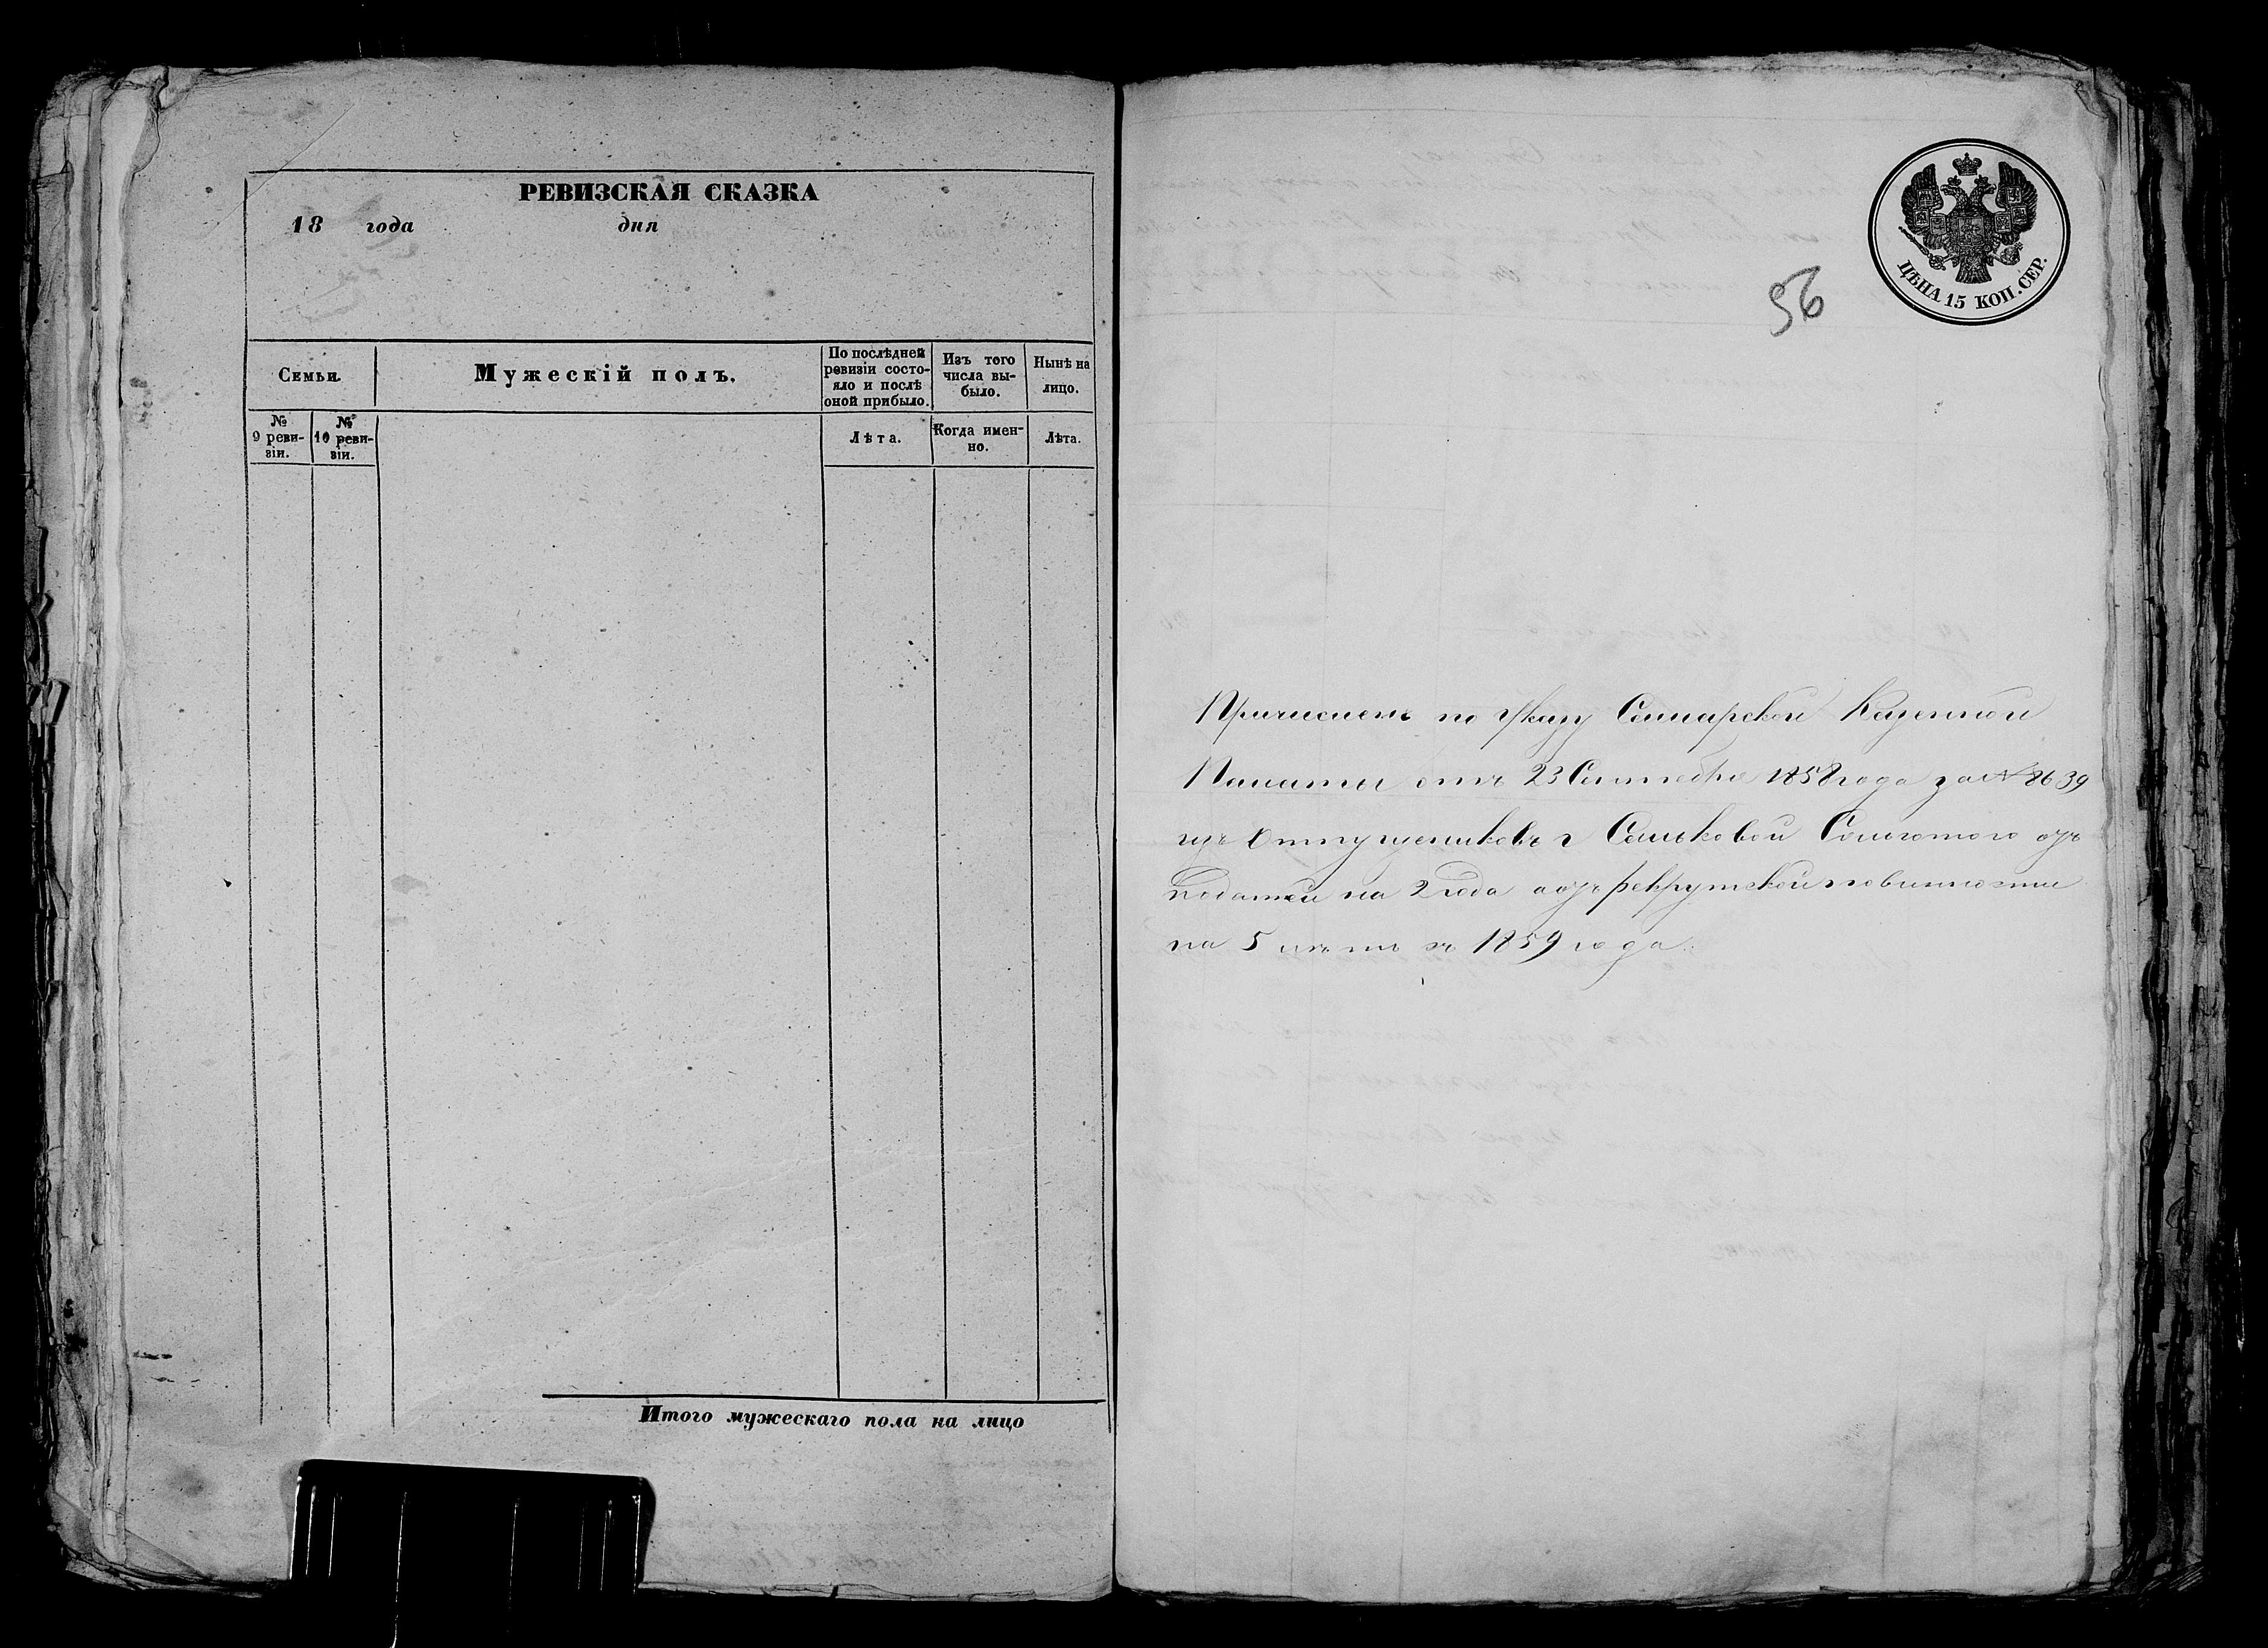 РЕВИЗСКАЯ СКАЗКА
18 года дня
Семьи.
Мужескій полъ.
По послѣдней ревизіи состо-
яло и послѣ
оной прибыло.
Изъ того
числа вы-
было.
Нынѣ на
лицо.
№
9 реви-
зіи.
№
10 реви-
зіи.
Лѣта.
Когда имен-
но.
Лѣта.
Итого мужескаго пола на лицо
ЦѢНА 15 КОП. СЕР.
56
Причисленъ по Указу Самарской Казенной
Палаты отъ 23 Сентября 1858 года за № 8639
изъ Отпущениковъ г
податей на 2 года а отъ рекрутской повинности
на 5 лѣтъ съ 1859 года.